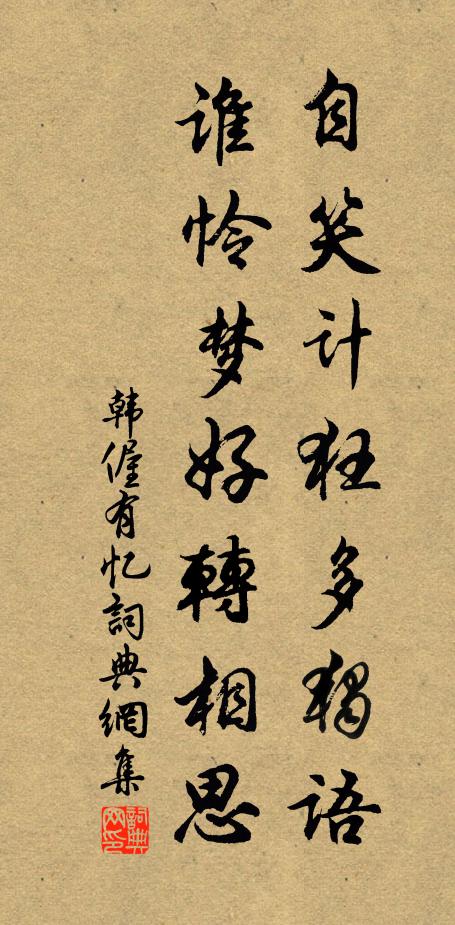 自笑计狂多独语
谁怜梦好轉相思
韩偓有忆詞典網集
詞典网印